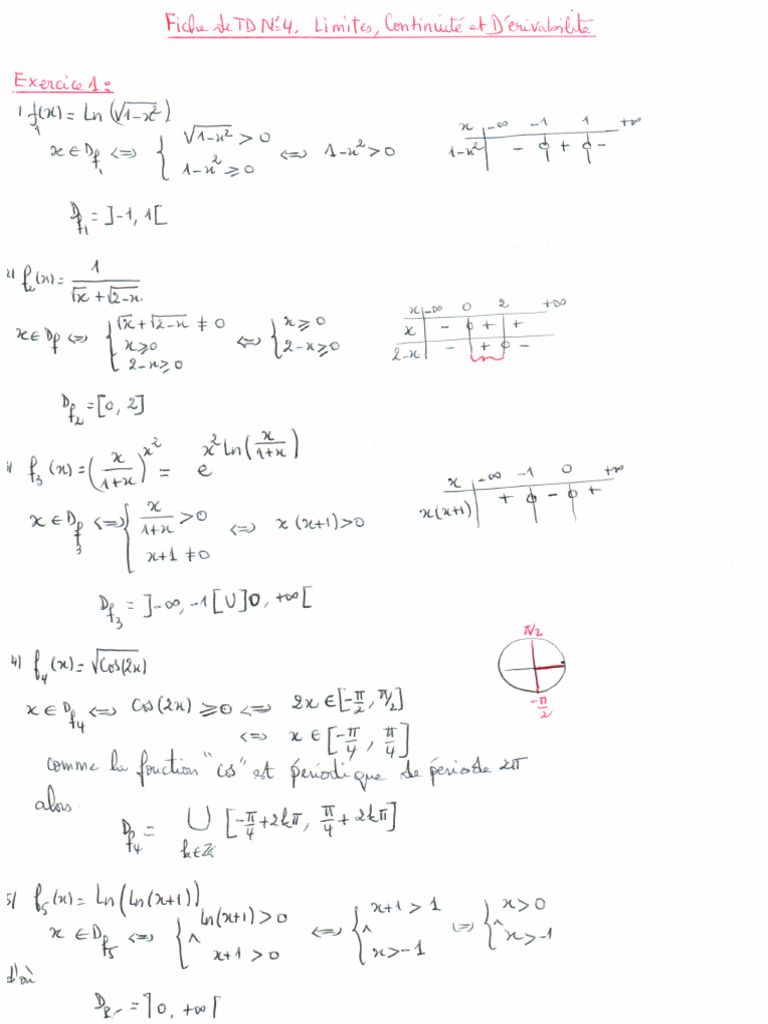 Fiche de TD N°4, Limites, Continuité et Dérivabilité
Exercice 1:
1 f₁(x) = Ln(√(1-x²))
x ∈ D_f₁ ⇔ { √(1-x²) > 0 ; 1-x² ≥ 0 ⇔ 1-x² > 0
x -∞ -1 1 +∞
1-x² - 0 + 0 -
D_f₁ = ]-1, 1[
2) f₂(x) = 1 / (√x + √(2-x))
x ∈ D_f ⇔ { √x + √(2-x) ≠ 0 ; x ≥ 0 ; 2-x ≥ 0 ⇔ { x ≥ 0 ; 2-x ≥ 0
x -∞ 0 2 +∞
x - 0 + +
2-x - + 0 -
D_f₂ = [0, 2]
f₃(x) = (x/(1+x))^x² = e^(x² Ln(x/(1+x)))
x ∈ D_f₃ ⇔ { x/(1+x) > 0 ; x+1 ≠ 0 ⇔ x(x+1) > 0
x -∞ -1 0 +∞
x(x+1) + 0 - 0 +
D_f₃ = ]-∞, -1[ U ]0, +∞[
4) f₄(x) = √(Cos(2x))
π/2
-π/2
x ∈ D_f₄ ⇔ Cos(2x) ≥ 0 ⇔ 2x ∈ [-π/2, π/2]
⇔ x ∈ [-π/4, π/4]
comme la fonction "cos" est périodique de période 2π
alors
D_f₄ = ⋃_{k∈ℤ} [-π/4 + 2kπ, π/4 + 2kπ]
5) f₅(x) = Ln(Ln(x+1))
x ∈ D_f₅ ⇔ { Ln(x+1) > 0 ∧ x+1 > 0 ⇔ { x+1 > 1 ∧ x > -1 ⇔ { x > 0 ∧ x > -1
d'où
D_f₅ = ]0, +∞[